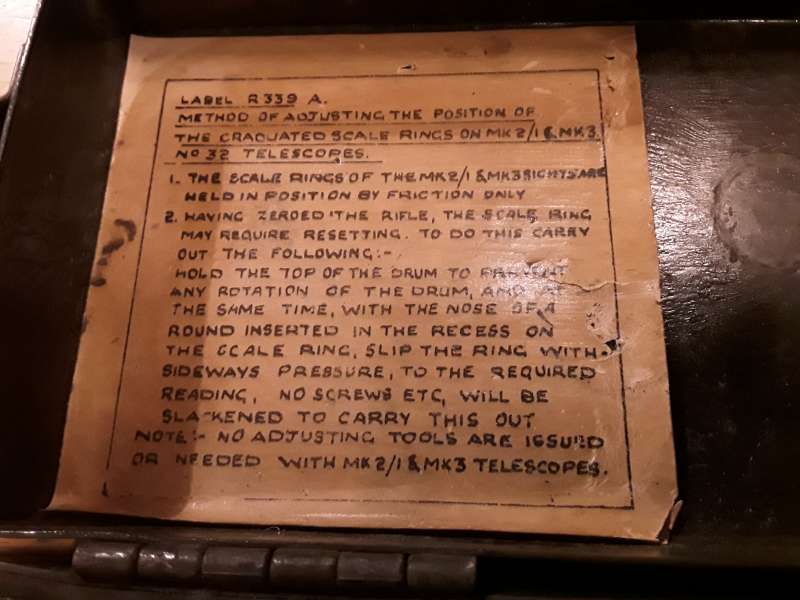 LABEL R339 A.
METHOD OF ADJUSTING THE POSITION OF
THE GRADUATED SCALE RINGS ON MK2/1 & MK3
NO 32 TELESCOPES.
1. THE SCALE RINGS OF THE MK2/1 & MK3 SIGHTS ARE
HELD IN POSITION BY FRICTION ONLY
2. HAVING ZEROED THE RIFLE, THE SCALE RING
MAY REQUIRE RESETTING. TO DO THIS CARRY
OUT THE FOLLOWING:-
HOLD THE TOP OF THE DRUM TO PREVENT
ANY ROTATION OF THE DRUM, AND AT
THE SAME TIME, WITH THE NOSE OF A
ROUND INSERTED IN THE RECESS ON
THE SCALE RING, SLIP THE RING WITH
SIDEWAYS PRESSURE, TO THE REQUIRED
READING, NO SCREWS ETC, WILL BE
SLACKENED TO CARRY THIS OUT
NOTE:- NO ADJUSTING TOOLS ARE ISSUED
OR NEEDED WITH MK2/1 & MK3 TELESCOPES.